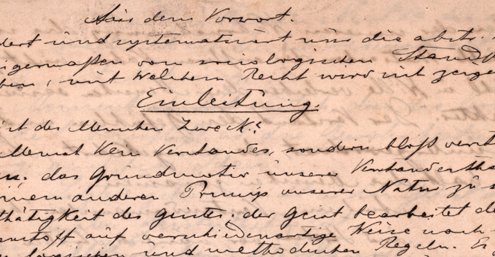 Aus dem Vorwort.
dert und systematisirt uns die arbts.
eigermaßen vom soziologischen Standp
ben, mit welchem Recht wird mit
Einleitung.
ist des Menschen Zweck?
Element kein Verstandes, sondern bloß
das Grundmotiv unserer
einem anderen Princip unserer Natur zu s
thätigkeit des Geistes. der Geist bearbeitet d
stoff auf verschiedenartige Weise nach
logischen und methodischen Regeln. Es